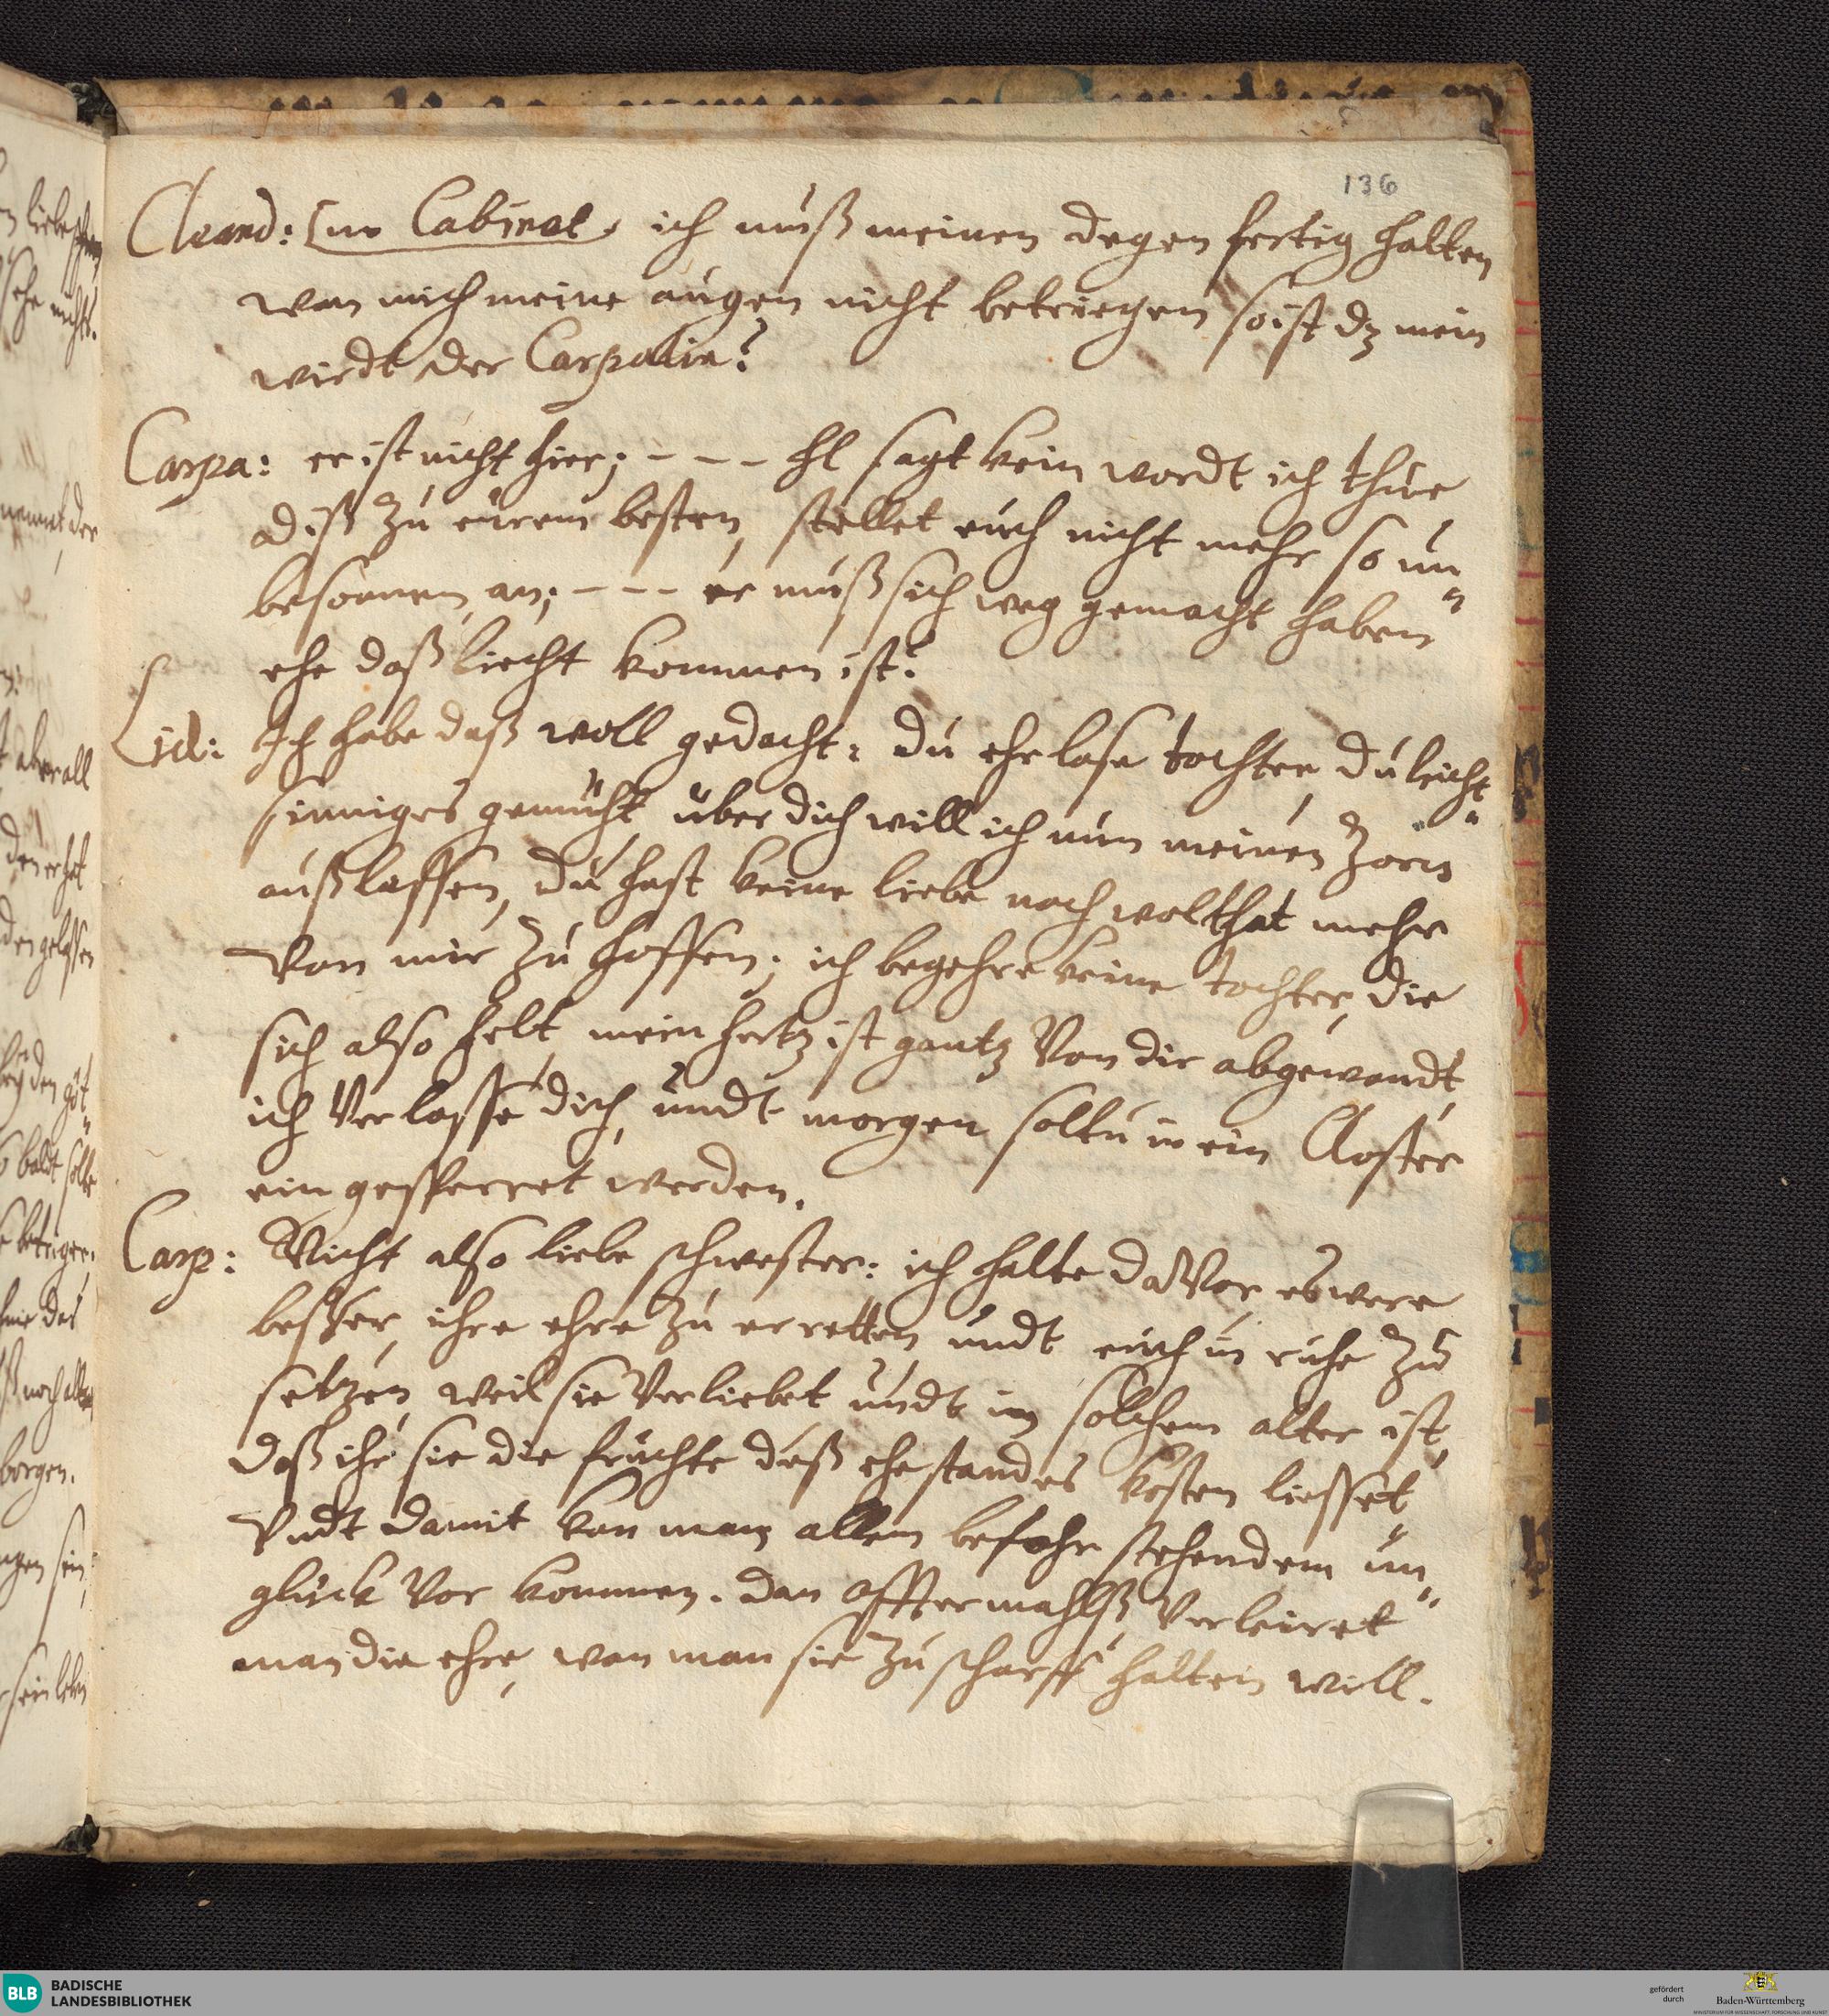 136
Cleand: im Cabinet, ich muß meinen degen fertig halten
wan mich meine augen nicht betriegen so ist dz mein
wirdt der Carpalin?
Carpa: er ist nicht hier; - - - St sagt kein wordt ich thue
diß zu eürem besten, stellet euch nicht mehr so un„
besonnen an; - - - er muß sich weg gemacht haben
ehe daß liecht kommen ist?
Lid: Ich habe daß woll gedacht: du ehrlose tochter du leicht„
sinniges gemüht, über dich will ich nun meinen Zorn
außlassen, du hast keine liebe noch wolthat mehr
Von mir zu hoffen; ich begehre keine tochter, die
sich also helt mein hertz ist gantz Von dir abgewandt,
ich Verlasse dich, undt morgen soltu in ein Closter
ein gesperret werden.
Carp: Nicht also liebe schwester: ich halte daVor, es were
besser, ihre ehre zu erretten undt euch in ruhe zu
setzen, weil sie Verliebet undt in solchem alter ist,
daß ihr sie die früchte deß ehestandes kosten liesset,
Undt damit kan man allem befahr stehendem un„
glück Vor kommen. dan offtermahlß Verleiret
man die ehre, wan man sie zu scharff halten will.
BLB
BADISCHE
LANDESBIBLIOTHEK
gefördert
durch
Baden-Württemberg
MINISTERIUM FÜR WISSENSCHAFT, FORSCHUNG UND KUNST